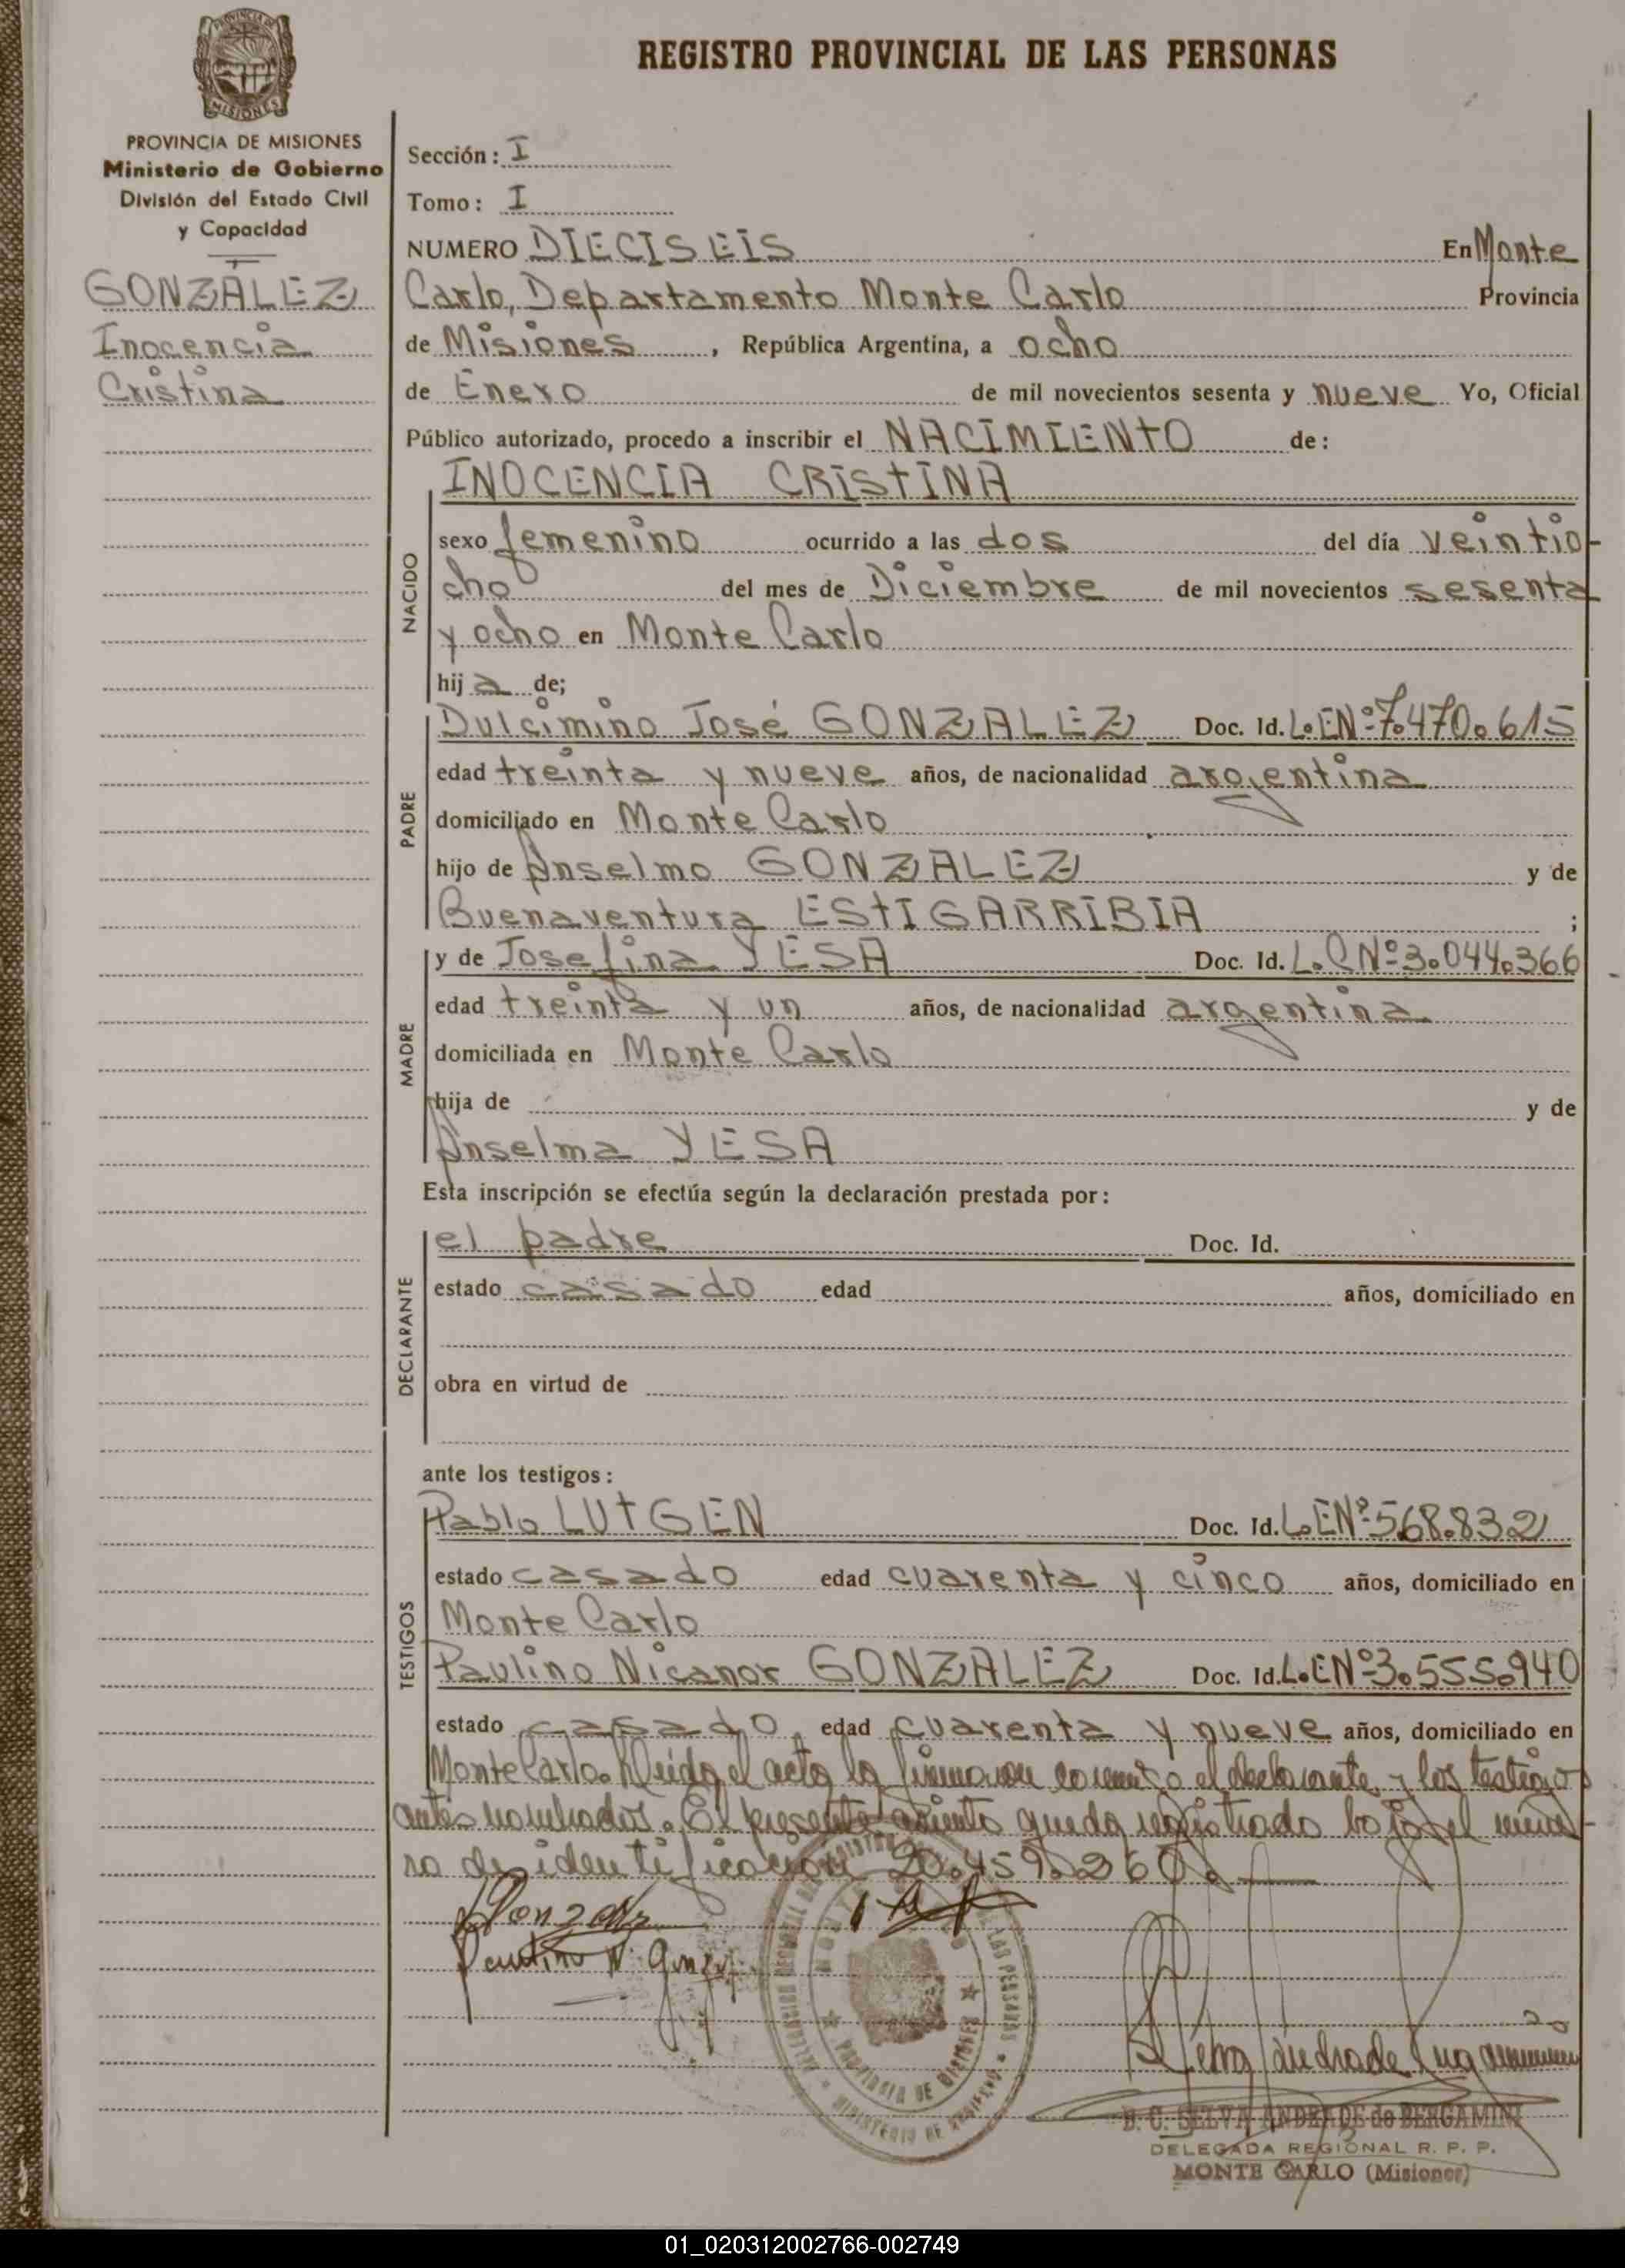 REGISTRO PROVINCIAL DE LAS PERSONAS
PROVINCIA DE MISIONES
Ministerio de Gobierno
División del Estado Civil
y Capacidad
GONZÁLEZ
Inocencia
Cristina
Sección: I
Tomo: I
NUMERO DIECISEIS En Monte
Carlo, Departamento Monte Carlo Provincia
de Misiones, República Argentina, a ocho
de Enero de mil novecientos sesenta y nueve Yo, Oficial
Público autorizado, procedo a inscribir el NACIMIENTO de:
INOCENCIA CRISTINA
NACIDO
sexo femenino ocurrido a las dos del día veintio-
cho del mes de Diciembre de mil novecientos sesenta
y ocho en Monte Carlo
hija de;
PADRE
Dulcimino José GONZALEZ Doc. Id. L.EN° 7.470.615
edad treinta y nueve años, de nacionalidad argentina
domiciliado en Monte Carlo
hijo de Anselmo GONZALEZ y de
Buenaventura ESTIGARRIBIA ;
MADRE
y de Josefina YESA Doc. Id. L.C N° 3.044.366
edad treinta y un años, de nacionalidad argentina
domiciliada en Monte Carlo
hija de y de
Anselma YESA
Esta inscripción se efectúa según la declaración prestada por:
DECLARANTE
el padre Doc. Id.
estado casado edad años, domiciliado en
obra en virtud de
ante los testigos:
TESTIGOS
Pablo LUTGEN Doc. Id. L.EN° 568.832
estado casado edad cuarenta y cinco años, domiciliado en
Monte Carlo
Paulino Nicanor GONZALEZ Doc. Id. L.EN° 3.555.940
estado casado, edad cuarenta y nueve años, domiciliado en
Monte Carlo. Leída el acta la firmaron conmigo el declarante y los testigos
antes nombrados. El presente asiento queda registrado bajo el núme-
ro de identificación 20.459.260.
Gonzalez
Paulino N. Gonz
PROVINCIA DE MISIONES
MINISTERIO DE GOBIERNO
B. C. SELVA ANDRADE de BERGAMINI
DELEGADA REGIONAL R. P. P.
MONTE CARLO (Misiones)
01_020312002766-002749